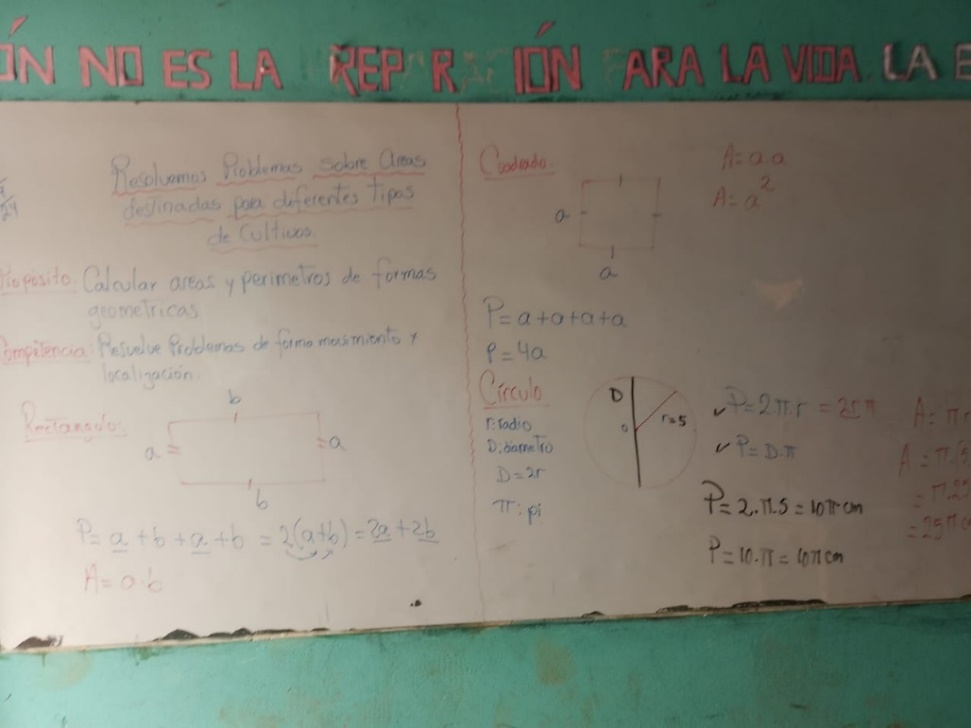 ÓN NO ES LA REP R IÓN ARA LA VIDA LA E
24
Resolvemos Problemas sobre Areas
destinadas para diferentes Tipos
de Cultivos.
Proposito: Calcular areas y perimetros de formas
geometricas
Competencia: Resuelve Problemas de forma movimiento y
localización.
Rectangulo:
b
a
a
b
P= a + b + a + b = 2(a+b) = 2a + 2b
A= a·b
Cuadrado:
a
a
A= a.a
A= a²
P= a+a+a+a
P= 4a
Círculo
r: radio
D: diametro
D= 2r
π: pi
D
r=5
o
✓ P=2π.r = 2rπ
✓ P= D.π
P= 2.π.5 = 10π cm
P= 10.π = 10π cm
A= π
A= π.
= π.25
= 25π